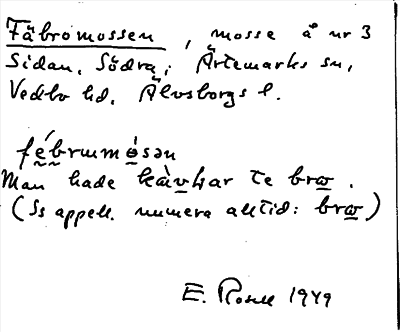 Fäbromossen, mosse å nr 3
Sidan, Södra; Ärtemarks sn,
Vedbo hd, Älvsborgs l.
fḛ́b̰rummo̲̍sən
Man hade kàv̲ɫar te brɯ̲.
(Ss appell. numera alltid: brɯ̲)
E. Rosell 1949